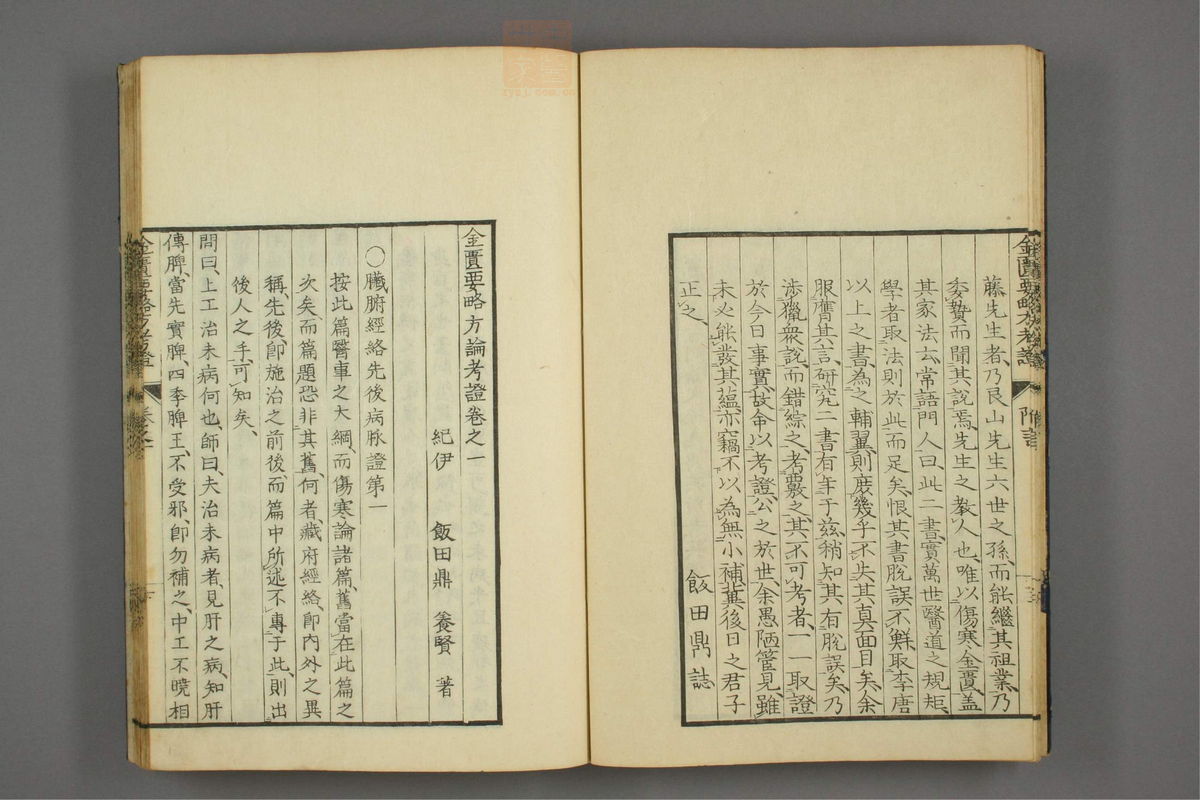 藤先生者乃艮山先生六世之孫、而能繼其祖業、乃
委贄而聞其說焉、先生之教人也、唯以傷寒金匱、盖
其家法云、常語門人曰、此二書、實萬世醫道之規矩、
學者取法則於此而足矣、恨其書脫誤不鮮、取李唐
以上之書、為之輔翼、則庶幾乎不失其真面目矣、余
服膺其言、研究二書有年于茲、稍知其有脫誤矣、乃
涉獵衆說、而錯綜之、考覈之、其不可考者、一一取證
於今日事實、故命以考證、公之於世、余愚陋管見、雖
未必能發其蘊、亦竊不以為無小補、冀後日之君子
正之、
飯田鼎誌
金匱要略方考證
附言
金匱要略方論考證卷之一
紀伊 飯田鼎 養賢 著
○臟腑經絡先後病脉證第一
按此篇醫車之大綱、而傷寒論諸篇、舊當在此篇之
次矣、而篇題恐非其舊、何者、藏府經絡、卽內外之異
稱、先後、卽施治之前後、而篇中所述、不專于此、則出
後人之手、可知矣、
問曰、上工治未病何也、師曰、夫治未病者、見肝之病、知肝
傳脾、當先實脾、四季脾王、不受邪、卽勿補之、中工不曉相
金匱要略方考證
卷之一